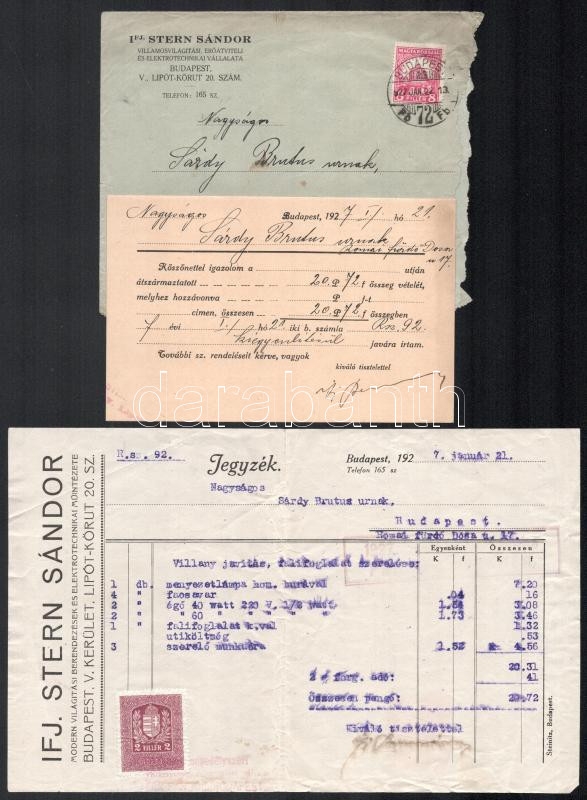 IFJ. STERN SÁNDOR
VILLAMOSVILÁGITÁSI, ERŐÁTVITELI
ÉS ELEKTROTECHNIKAI VÁLLALATA
BUDAPEST,
V., LIPÓT-KÖRUT 20. SZÁM.
TELEFON: 165 SZ.
MAGYARORSZÁG
BUDAPEST
927 JAN. 22. 13
72
Nagyságos
Sárdy Brutus urnak,
Nagyságos Budapest, 1927 I/ hó 21.
Sárdy Brutus urnak
Római fürdő Dósa
u 17.
Köszönettel igazolom a utján
átszármaztatott 20 P 72 f összeg vételét,
melyhez hozzávonva P f-t
cimen, összesen 20 P 72 f összegben
f évi I/ hó 21 iki b. számla Rsz. 92.
kiegyenlítésül javára irtam.
További sz. rendeléseit kérve, vagyok
kiváló tisztelettel
darabanth
IFJ. STERN SÁNDOR
MODERN VILÁGITÁSI BERENDEZÉSEK ÉS ELEKTROTECHNIKAI MŰINTÉZETE
BUDAPEST, V. KERÜLET, LIPÓT-KÖRUT 20. SZ.
R.sz. 92. Jegyzék. Budapest, 192 7. január 21.
Telefon 165 sz
Nagyságos
Sárdy Brutus urnak,
Budapest.
Római fürdő Dósa u. 17.
Egyenként Összesen
K f K f
Villany javitás, falifoglalat szerelése:
1 db. menyezetlámpa hom. burával 7.20
4 " facsavar .04 16
2 " égő 40 watt 220 V. 1/2 watt. 1.54 3.08
2 " " 60 " " " " 1.73 3.46
1 " falifoglalat k.val 1.32
utiköltség .53
3 " szerelő munkaóra 1.52 4.56
20.31
2 % forg. adó: 41
Összesen pengő: 20.72
Kiváló tisztelettel
2 FILLÉR 2
Steinitz, Budapest.